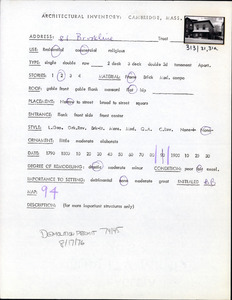 ARCHITECTURAL INVENTORY: CAMBRIDGE, MASS.
ADDRESS: 81 Brookline Street
USE: Residential commercial religious
TYPE: single double row 2 deck 3 deck double 3d tenement Apart.
STORIES: 1 2 3 4 MATERIAL: Frame Brick Masd. compo
ROOF: gable front gable flank mansard flat hip
PLACEMENT: Narrow to street broad to street square
ENTRANCE: flank front side front center
STYLE:
ORNAMENT: little moderate elaborate
DATE: 1790 1800 10 20 30 40 50 60 70 80 90 1900 10 20 30
DEGREE OF REMODELING: drastic moderate minor CONDITION: poor fair equal.
IMPORTANCE TO SETTING: detrimental none moderate great INITIALS BB
MAP: 94
DESCRIPTION: (for more important structures only)
DEMOLITION PERMIT
8/17/76